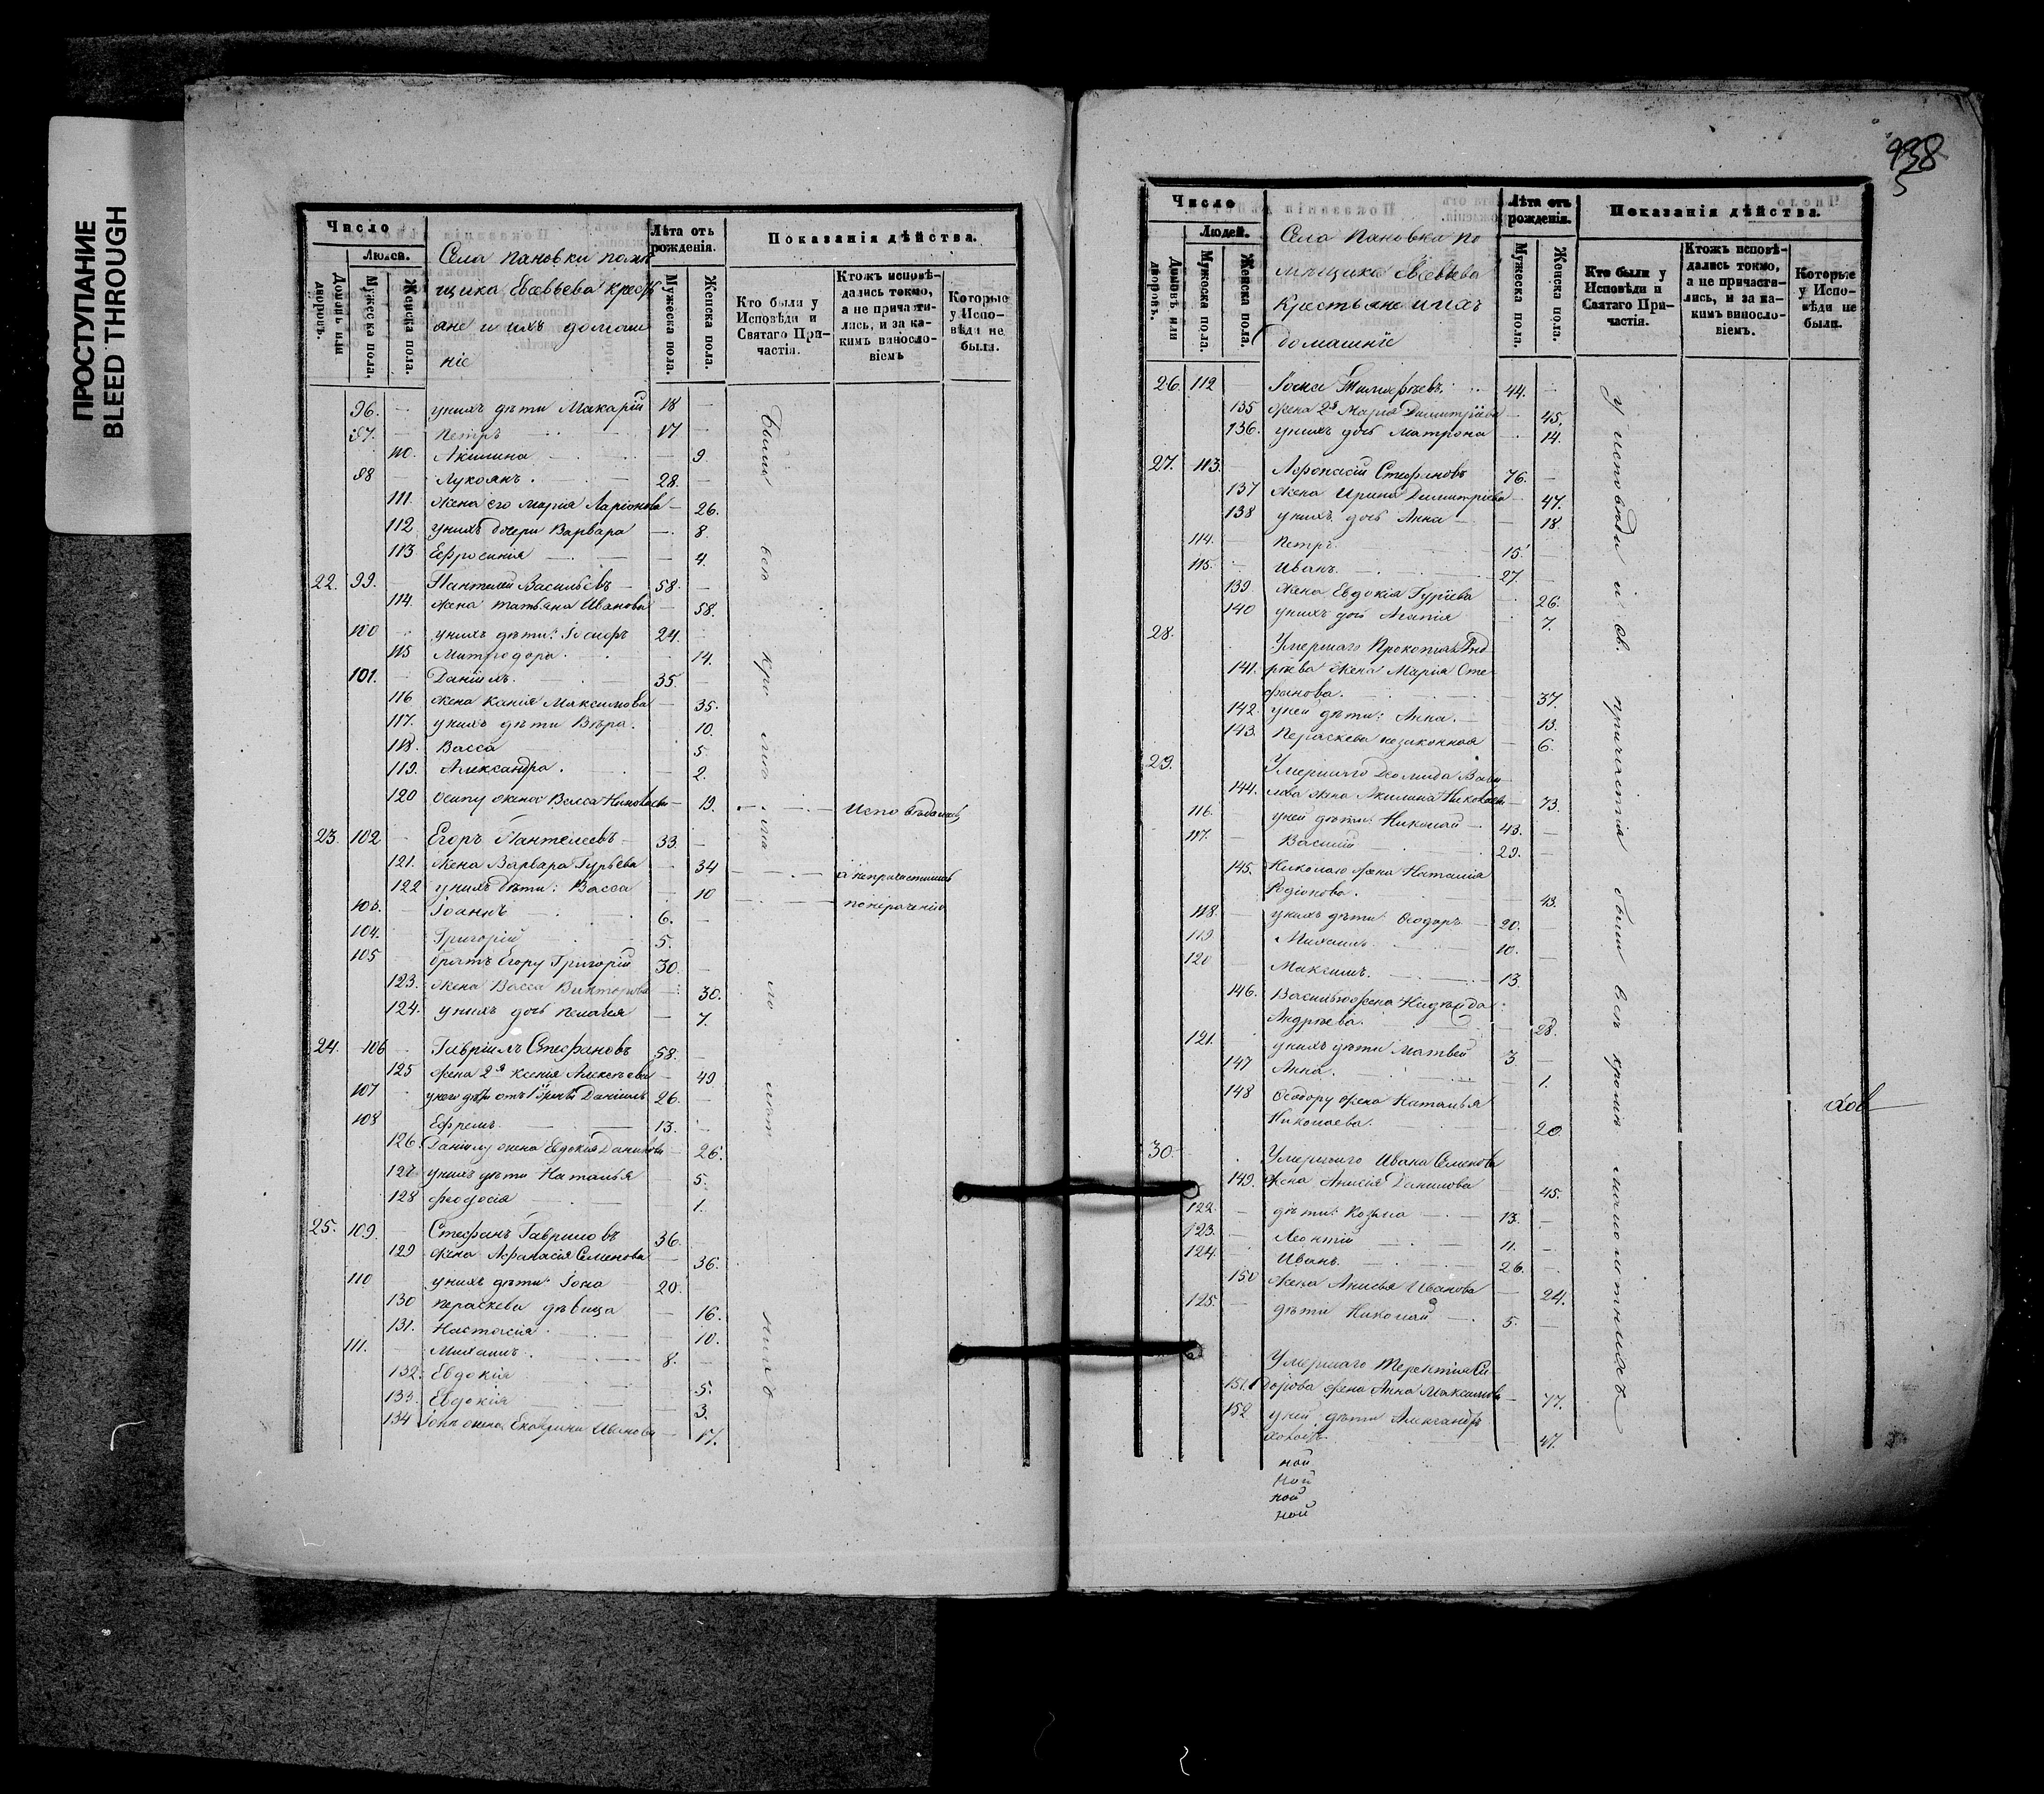 ПРОСТУПАНИЕ
BLEED THROUGH
Число
Людей.
Домовъ или дворовъ.
Мужеска пола.
Женска пола.
Села Пановки помѣ
щика Евсевьева кресть
яне и ихъ домаш
ніе
Лѣта отъ рожденія.
Мужеска пола.
Женска пола.
Показанія дѣйства.
Кто были у Исповѣди и Святаго Причастія.
Ктожъ исповѣдались токмо, а не причастились, и за какимъ винословіемъ
Которые у Исповѣди не были.
96. — унихъ дѣти Макарій 18 —
97. — Петръ 17 —
110. Акилина — 9.
98 — Лукоянъ. 28. —
111. жена его Марія Ларіонова — 26.
112 унихъ дочери Варвара — 8.
113 Ефросинія — 4.
22. 99. — Пантелей Васильевъ — 58. —
114. жена Татьяна Иванова — 58.
100 — унихъ дѣти: Іосифъ 24. —
115 Митродора. 14.
101. — Даніилъ. 35. —
116 жена Ксенія Максимова — 35.
117. унихъ дѣти Вѣра. 10.
118. Васса 5.
119. Александра. — 2.
120 Осипу жена Васса Николаева — 19. — Исповѣдались
23. 102 — Егоръ Пантелеевъ — 33. —
121. жена Варвара Гурьева — 34 — а непричастились
122 унихъ дѣти: Васса — 10 — понерачению
103. — Іоаннъ 6. —
104. — Григорій 5. —
105 — братъ Егору Григорій 30. —
123. жена Васса Викторова — 30.
124. унихъ дочь Пелагея — 7.
24. 106 — Гавріилъ Стефановъ 58. —
125 жена 2я Ксенія Алексѣева — 49
107 — унего дѣти отъ 1й жены Даніилъ 26. —
108 Ефремъ. 13. —
126. Даніилу жена Евдокія Данилова — 26.
127 унихъ дѣти Наталья — 5.
128 Феодосія 1.
25. 109. — Стефанъ Гавриловъ 36. —
129 жена Афанасія Семенова — 36.
110 — унихъ дѣти: Іона 20. —
130 Параскева дѣвица — 16.
131. Настасія. 10.
111. — Михаилъ. 8. —
132. Евдокія 5.
133. Евдокія — 3.
134 Іонѣ жена Екатерина Иванова — 17.
Были всѣ кро мѣ ма ло лѣт нихъ
938
5
Число
Людей.
Домовъ или дворовъ.
Мужеска пола.
Женска пола.
Села Пановки по
мѣщика Евсевьева
Крестьяне и ихъ
домашніе
Лѣта отъ рожденія.
Мужеска пола.
Женска пола.
Показанія дѣйства.
Кто были у Исповѣди и Святаго Причастія.
Ктожъ исповѣдались токмо, а не причастились, и за какимъ винословіемъ.
Которые у Исповѣди не были.
26. 112 — Іоана Тимофѣевъ 44. —
135 жена 2я Марія Димитріева — 45.
136. унихъ дочь Матрона — 14.
27. 113. — Афонасій Стефановъ 76. —
137 жена Ирина Димитріева — 47.
138 унихъ дочь Анна — 18.
114. — Петръ. 15. —
115. — Иванъ. 27. —
139. жена Евдокія Гурьева 26.
140 унихъ дочь Агапія 7.
28. Умершаго Прокопія Анд
141. рѣева жена Марія Сте
фанова. 37.
142. уней дѣти: Анна. — 13.
143. Параскева незаконная — 6.
29. Умершаго Деомида Вави
144. лова жена Акилина Николаева — 73.
116. — уней дѣти: Николай — 43. —
117. — Василій 29. —
145. Николаю жена Наталія
Родіонова. 43.
118. — унихъ дѣти: Ѳеодоръ — 20. —
119 — Михаилъ. 10. —
120 — Максимъ. 13.
146. Василью жена Надежда
Андреева. 28.
121. — унихъ дѣти Матвей 3 —
147 Анна. — 1.
148 Ѳеодору жена Наталья
Николаева. — 20.
30. Умершаго Ивана Семенова
149. жена Анисія Данилова — 45.
122. — дѣти: Козьма — 13. —
123. — Леонтій 11. —
124. — Иванъ. 26. —
150 жена Анисья Иванова — 24.
125. — дѣти Николай — 5. —
Умершаго Терентія Си
151. дорова жена Анна Максимова — 77.
152 уней дѣти Александръ
47.
ной
ной
ной
ной
у исповѣди и св. причастія были всѣ кромѣ малолѣтнихъ